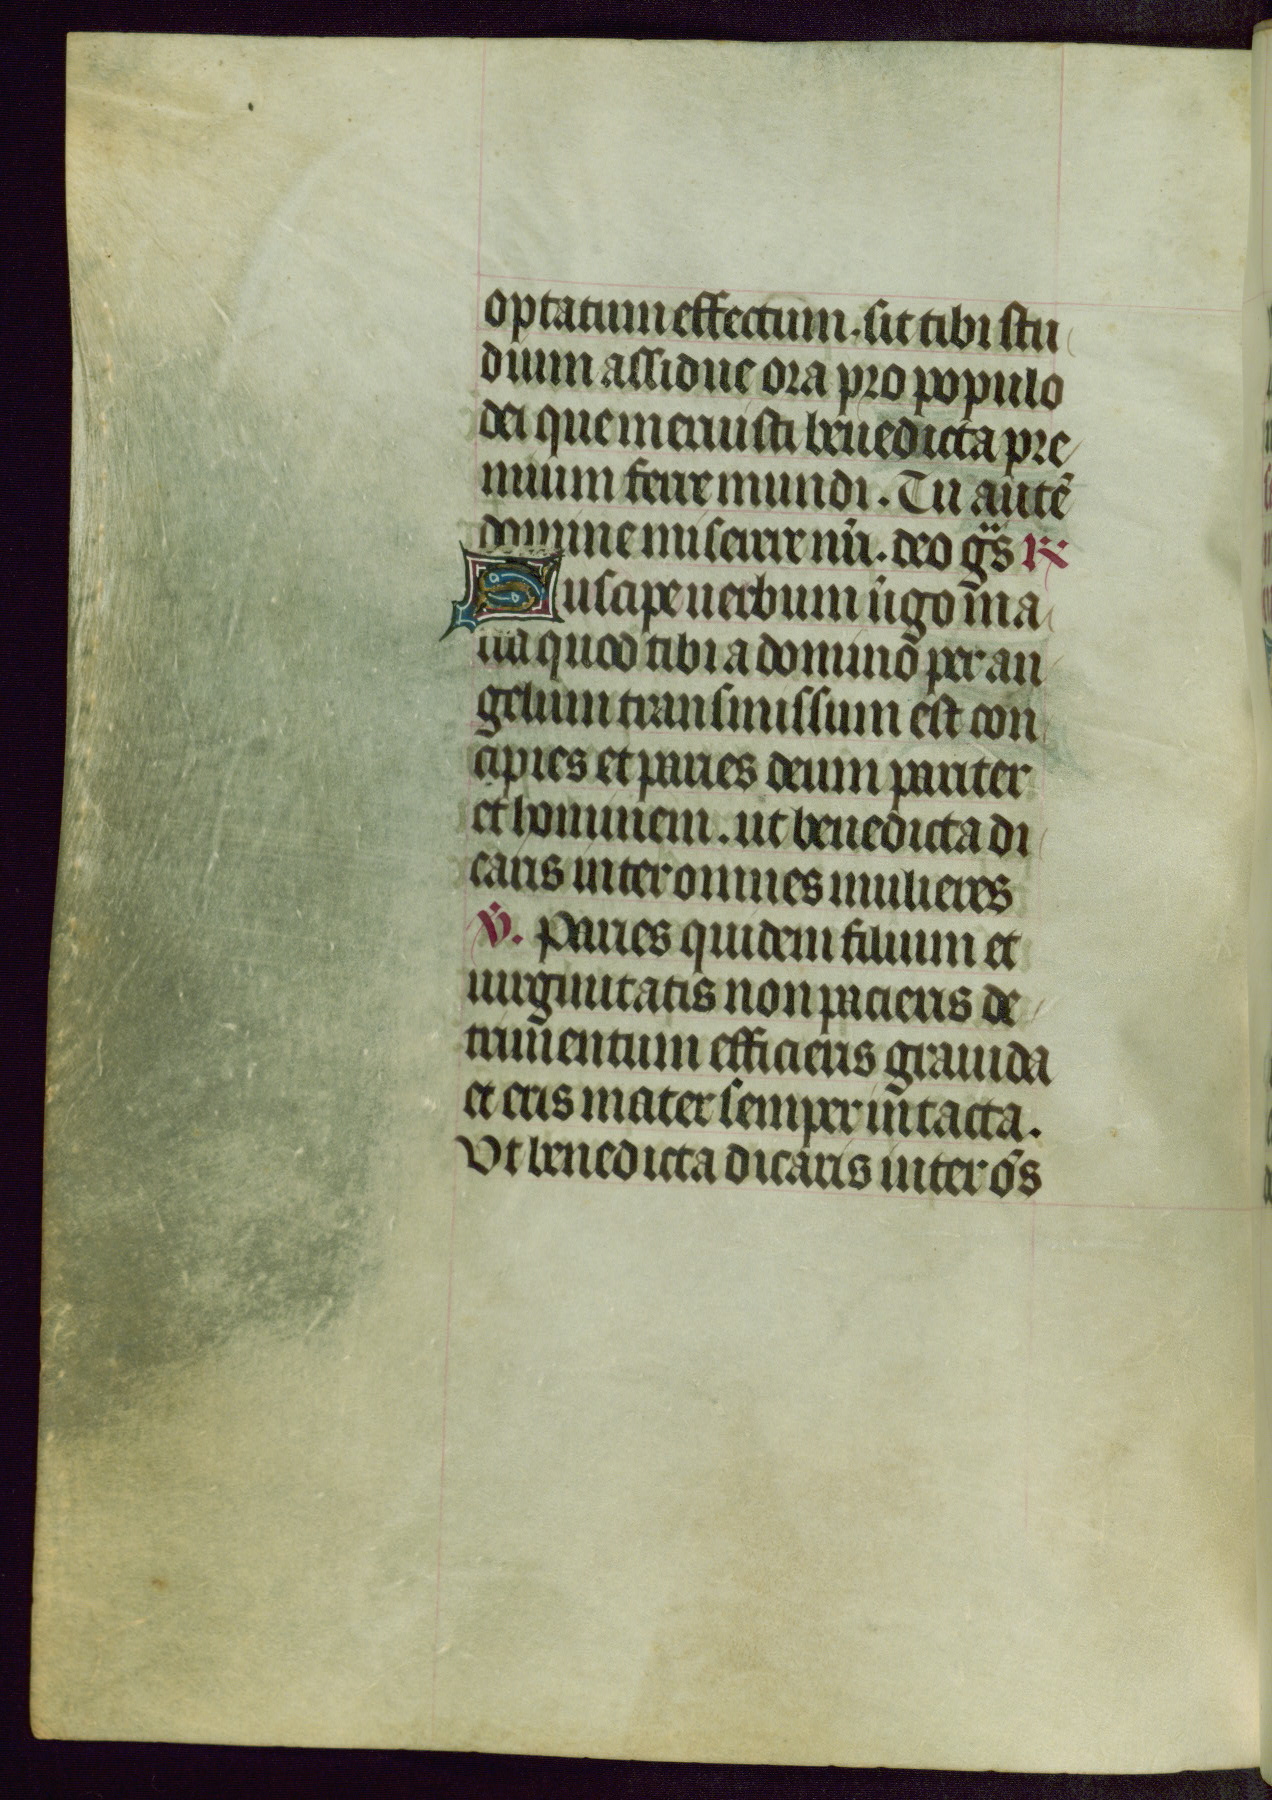 optatum effectum. sit tibi stu
dium assidue ora pro populo
dei que meruisti benedicta pre
mium ferre mundi. Tu autē
domine miserere nr̄i. deo gr̄s ℟
Suscipe uerbum uigo ma
ria quod tibi a domino per an
gelum transmissum est con
cipies et paries deum pariter
et hominem. ut benedicta di
caris inter omnes mulieres
℣. Paries quidem filium et
uirginitatis non pacieris de
trimentum efficieris grauida
et eris mater semper intacta.
Vt benedicta dicaris inter ōs